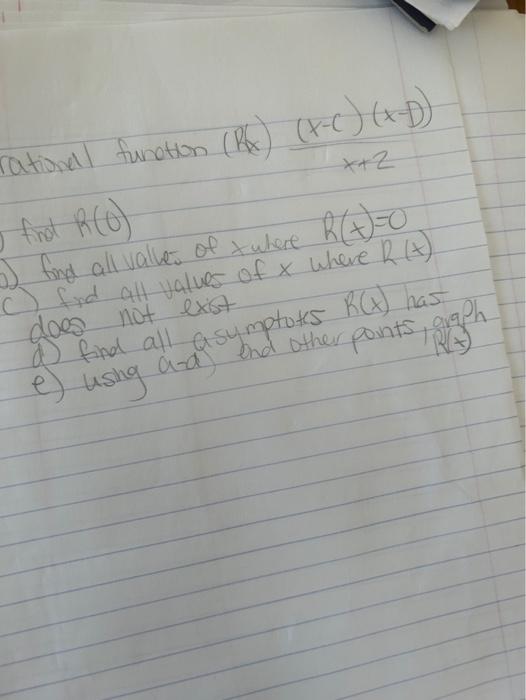 rational function (R(x) (x-C)(x-D)
x+2
) find R(0)
b) find all values of x where R(x)=0
c) find all values of x where R(x)
does not exist
d) find all asymptots R(x) has
e) using a-d) end other points, graph
R(x)